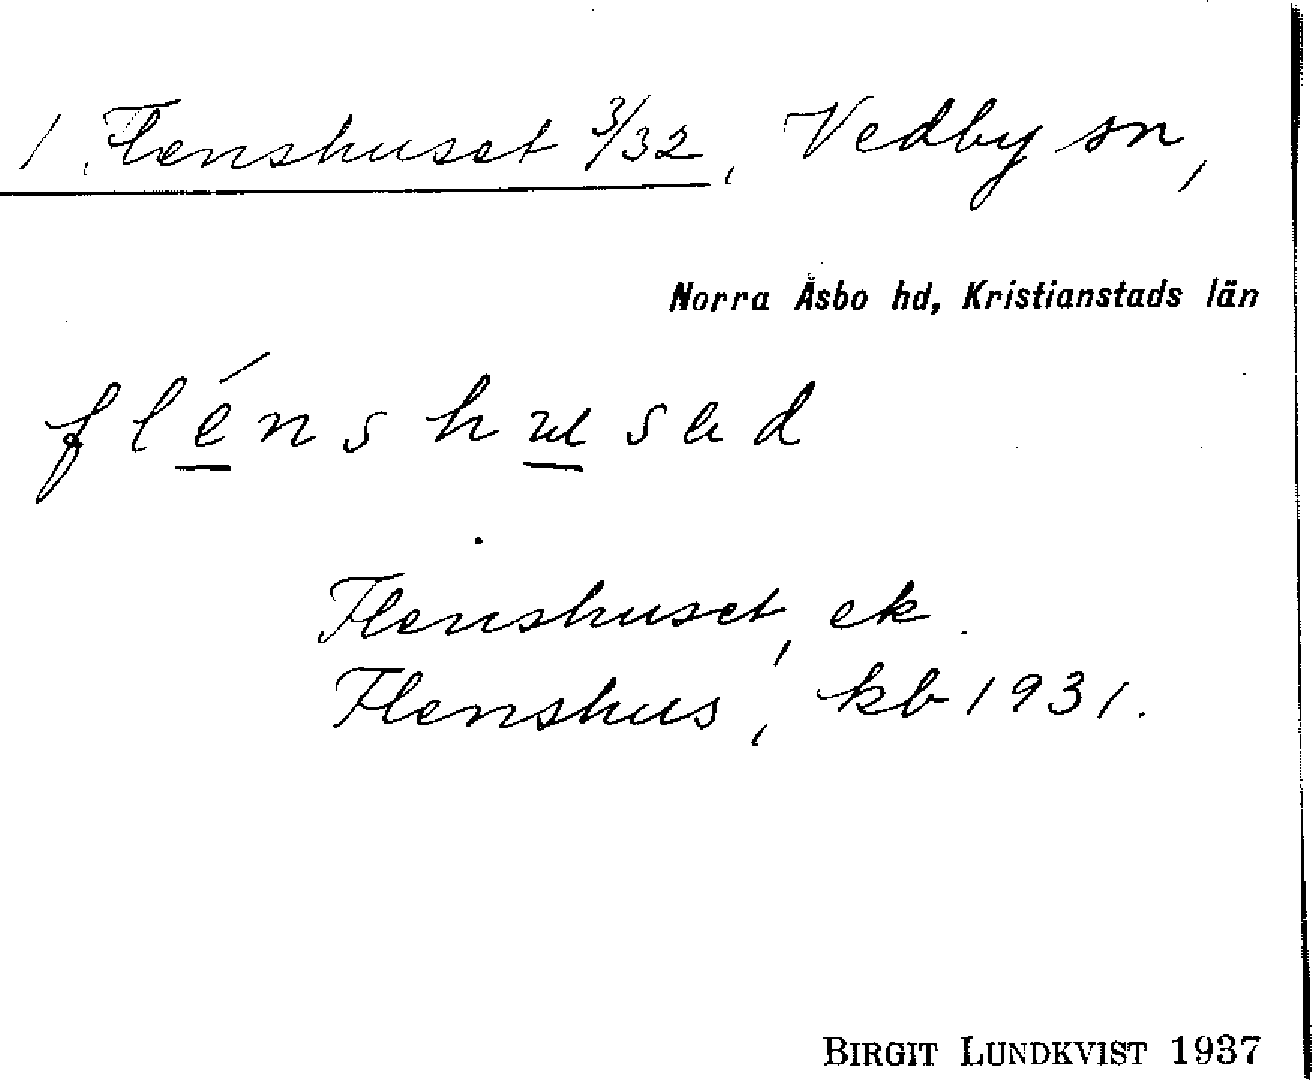 1 Flenshuset 3/32, Vedby sn,
Norra Åsbo hd, Kristianstads län
flénshusad
Flenshuset, ek.
Flenshus, kb 1931.
BIRGIT LUNDKVIST 1937